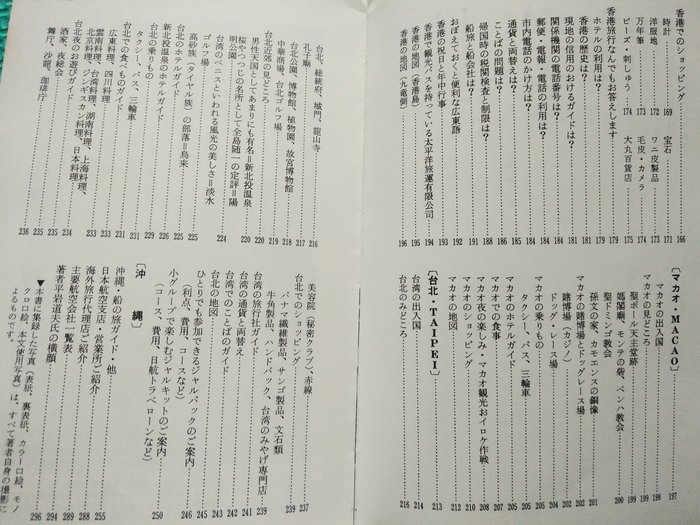 香港でのショッピング
時計 169 宝石 171
洋服地 172 ワニ皮製品 173
万年筆 173 毛皮・カメラ 174
ビーズ・刺しゅう 174 大丸百貨店 175
香港旅行なんでもお答えします
ホテルの利用は?
香港の歴史は?
現地の信用のおけるガイドは?
関係機関の電話番号は?
郵便・電報・電話の利用は?
市内電話のかけ方は?
通貨と両替えは?
ことばの問題は?
帰国時の税関検査と制限は?
船旅と船会社は?
おぼえておくと便利な広東語
香港の祝日と年中行事
香港で観光バスを持っている太平洋旅運有限公司 194
香港の地図(香港島) 195
香港の地図(九竜側) 196
〔マカオ・MACAO〕
マカオの出入国 197
マカオの見どころ 198
聖ポール天主堂跡 199
媽閣廟、モンテの砦、ペンハ教会
聖ドミンゴ教会
孫文の家、カモエンスの銅像 201
マカオの賭博場とドッグレース場 202
賭博場(カジノ) 202
ドッグ・レース場 204
マカオの乗りもの
タクシー、バス、三輪車
マカオのホテルガイド
マカオでの食事
マカオ夜の楽しみ・マカオ観光おイロケ作戦 208
マカオのショッピング
マカオの地図
〔台北・TAIPEI〕
台湾の出入国 213
台北のみどころ 216
台北、総統府、城門、龍山寺 216
孔子廟 217
台北公園、博物館、植物園、故宮博物館 217
中華商場、台北ゴルフ場 218
台北近郊の見どころ 219
男性天国としてあまりにも有名=新北投温泉 220
桜やつつじの名所として全島随一の定評=陽
明公園 220
台湾のベニスといわれる風光の美しさ=淡水
ゴルフ場 224
高砂族(タイヤル族)の部落=烏来 225
台北のホテルガイド
新北投温泉のホテルガイド
台北の乗りもの
タクシー、バス、三輪車 231
台北での食べものガイド 231
広東料理、四川料理
雲南料理、台湾料理、湖南料理、上海料理、
北京料理、ジンギスカン料理、日本料理 233
台北夜のお遊びガイド 234
酒家、夜総会 235
舞庁、沙龍、珈琲庁 236
美容院(秘密クラブ)、赤線 237
台北でのショッピング 239
パナマ繊維製品、サンゴ製品、文石類
牛角製品、ハンドバック、台湾のみやげ専門店 239
台湾の旅行社ガイド 240
台湾の通貨と両替え 242
台湾でのことばのガイド 242
台北の地図 243
ひとりでも参加できるジャルパックのご案内 245
(利点、費用、コースなど) 246
小グループで楽しむジャルキットのご案内
(コース、費用、日航トラベローンなど) 250
〔沖 縄〕
沖縄・船の旅ガイド・他 255
日本航空支店・営業所ご紹介 288
海外旅行代理店ご紹介 289
主要航空会社一覧表 294
著者平岩道夫氏の横顔 296
▼本書に集録した写真(表紙、裏表紙、カラー口絵、モノ
クロ口絵、本文使用写真)は、すべて著者自身の撮影に
よるものです。